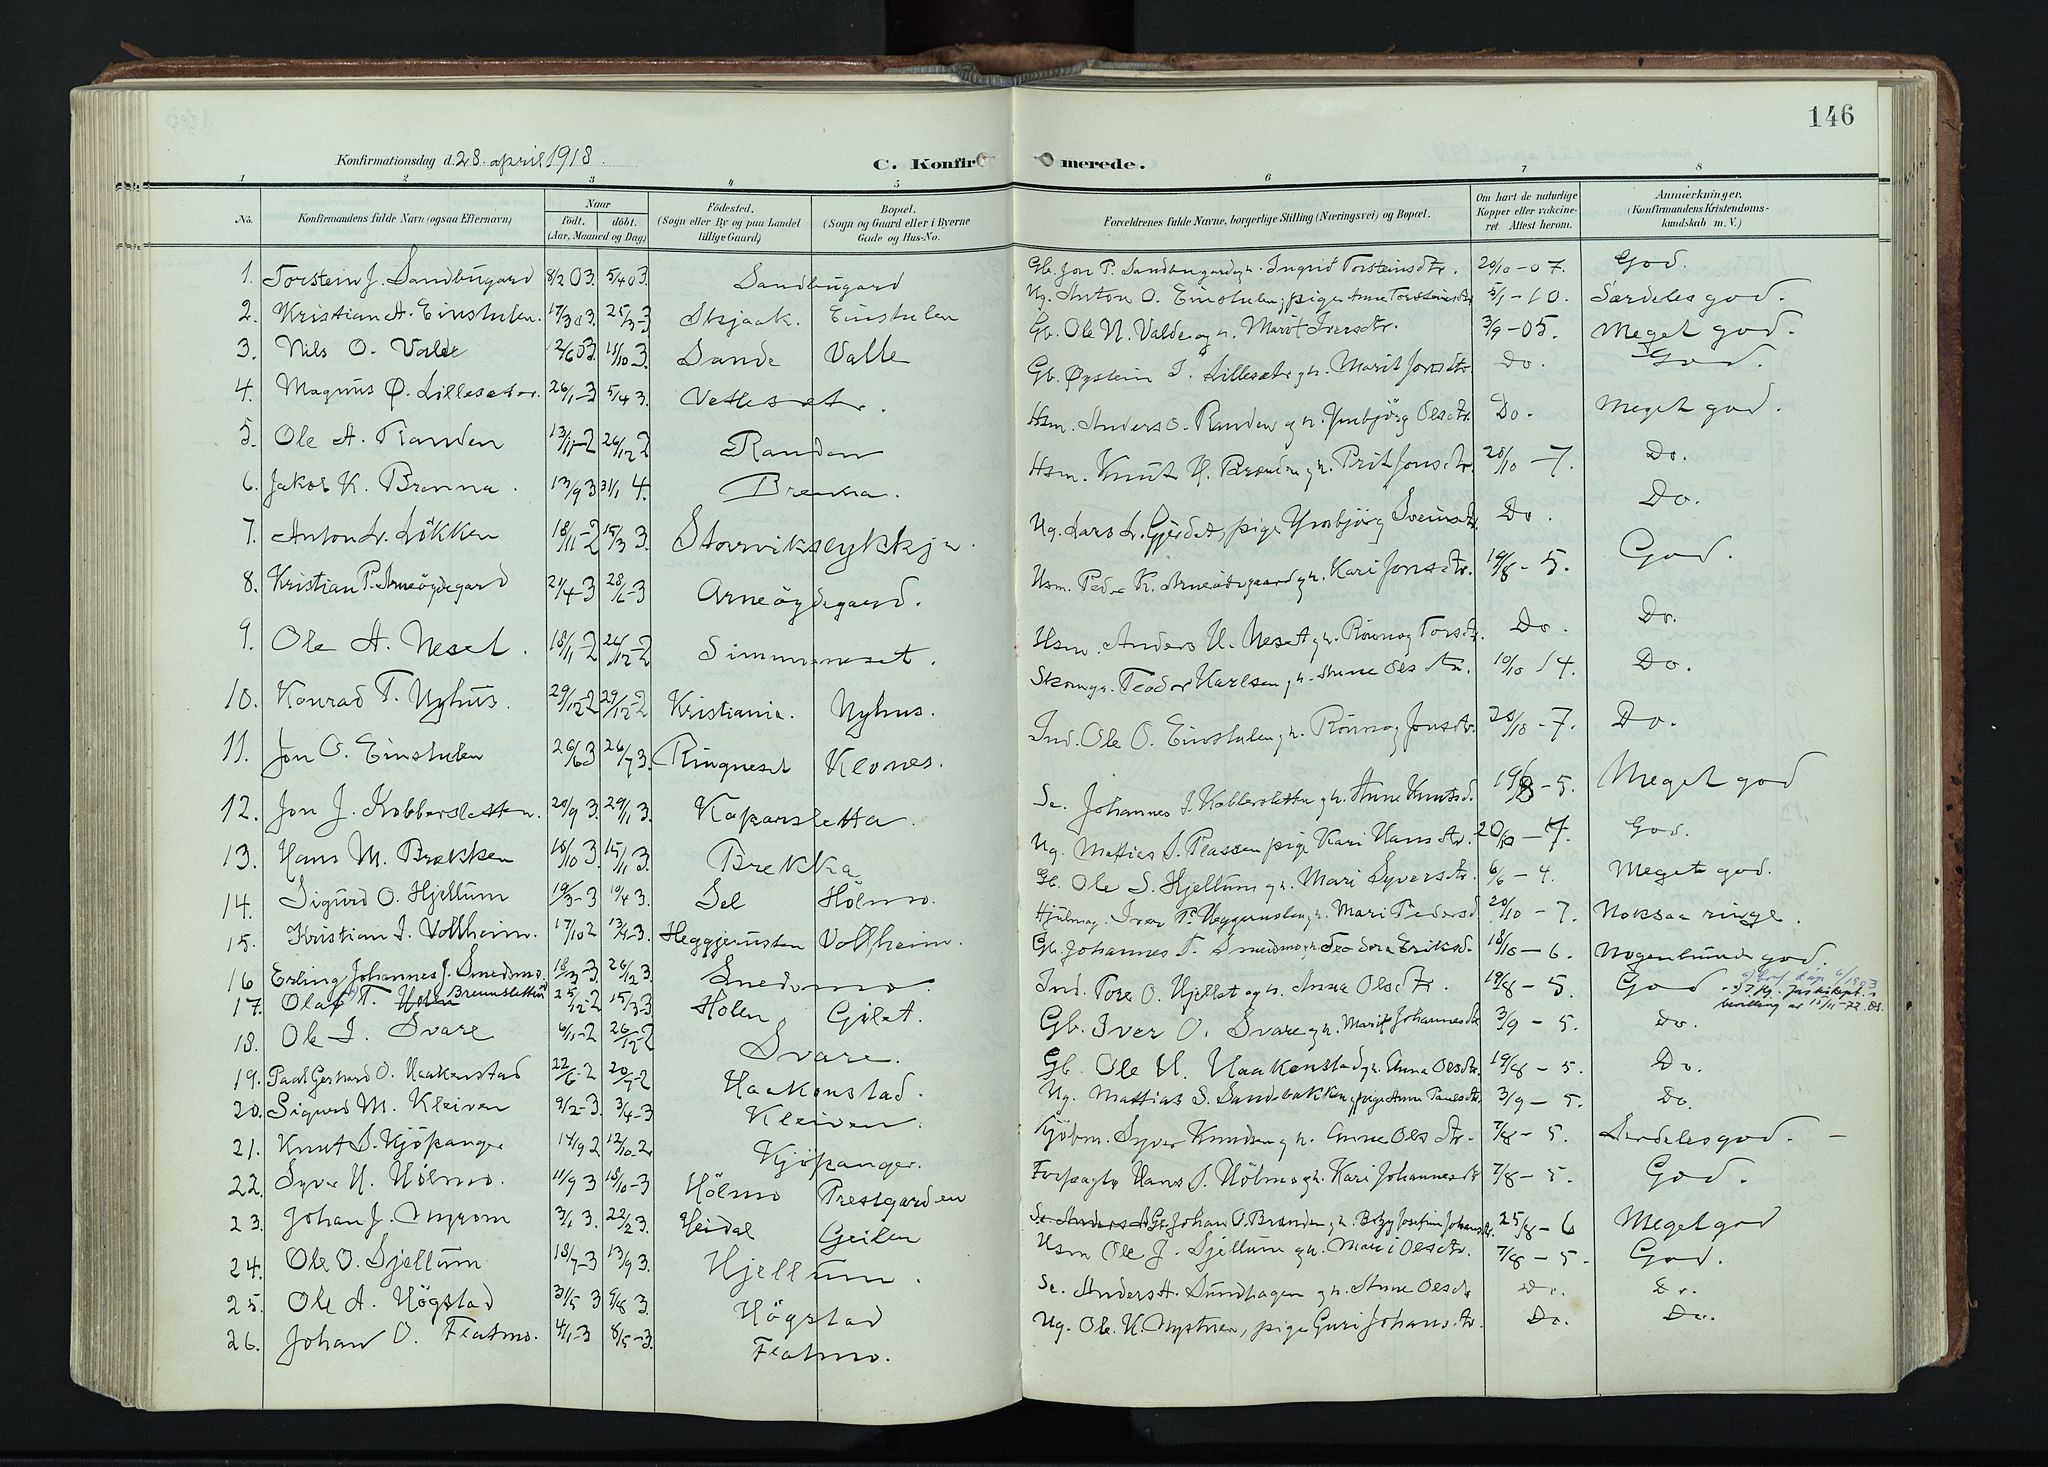 146
Konfirmationsdag d. 28. april 1918.
C. Konfirmerede.
1 2 3 4 5 6 7 8
No. Konfirmandens fulde Navn (ogsaa Efternavn) Naar født. døbt. (Aar, Maaned og Dag) Fødested. (Sogn eller By og paa Landet tillige Gaard) Bopæl. (Sogn og Gaard eller i Byerne Gade og Hus-No. Forældrenes fulde Navne, borgerlige Stilling (Næringsvei) og Bopæl. Om havt de naturlige Kopper eller vakcineret Attest herom. Anmærkninger. (Konfirmandens Kristendomskundskab m. V.)
1. Torstein J. Sandbugard 8/2 03. 5/4 03. Sandbugard Gb. Jon P. Sandbugard og h. Ingrid Torsteinsdtr. 20/10 - 07. God.
2. Kristian A. Einstulen. 17/3 03. 25/3-3 Skjaak. Einstulen Ug. Anton O. Einstulen, pige Anne Torsteinsdtr 5/1 - 10. Særdeles god.
3. Nils O. Valde 2/6 03. 11/10 3. Sande Valle Gb. Ole N. Valde og h. Marit Iversdtr. 3/9 - 05. Meget god.
4. Magnus Ø. Lillesæter. 26/1-3 5/4 3. Vetlesætr. Gb. Øystein J. Lillesætr og h. Marit Jonsdtr Do. God.
5. Ole A. Randen 13/11-2 26/12 2 Randen Hsm. Anders O. Randen og h. Ingbjörg Olsdtr. Do. Meget god.
6. Jakob K. Brenna. 13/9 3 31/1 4. Brenna. Hsm. Knut H. og h. Brit Jonsdtr. 20/10 - 7. Do.
7. Anton L. Løkken 18/11-2 15/3 3. Storvikslykkja. Ug. Lars L. Gjerdet, pige Ingbjörg Sveinsdtr Do. Do.
8. Kristian P. Arneøydegard 21/4-3 28/6-3 Arneøydegaard. Hsm. Peder K. Arneødegaard og h. Kari Jonsdtr. 19/8 - 5. God.
9. Ole A. Neset. 18/11-2 26/12-2 Simmeneset. Hsm. Anders H. Neset og h. Rønnog Torsdtr. Do. Do.
10. Konrad T. Nyhus. 29/12-2 29/12-2 Kristiania. Nyhus. Skomgr. Teodor Karlsen og h. Anne Olsdtr. 10/10 14. Do.
11. Jon O. Einstulen 26/6 3 26/7 3. Ringneset Klones. Ind. Ole O. Einstulen og h. Rønnog Jonsdtr. 20/10 - 7. Do.
12. Jon J. Kobbersletten. 20/9 3. 29/11 3. Koparsletta. Se. Johannes J. Kobbersletten og h. Anne Knutsd. 19/8 - 5. Meget god
13. Hans M. Brekken 18/10 3. 15/11 3. Brekka Ug. Mattias S. Plassen pige Kari Hansdtr. 20/10 - 7. God.
14. Sigurd O. Hjellum 19/3-3 19/4 3. Sel Hølmo. Gb. Ole S. Hjellum og h. Mari Syversdtr. 6/6 - 4. Meget god.
15. Kristian I. Vollheim. 17/10 2 13/4-3. Heggjerusten Vollheim. Hjulmag. Iver P. Heggerusten og h. Mari Pedersd. 20/10 - 7. Noksaa ringe.
16 Erling Johannes J. Smedmo. 18/3-3 26/12 3. Smedsmo. Gb. Johannes T. Smedsmo og h. Teodora Eriksd. 18/10 - 6. Nogenlunde god.
17. Olaf T. Holen Bremslettin 25/12-2 15/3-3 Holen Gjilet. Ind. Tore O. Hjeltet og h. Anne Olsdtr. 19/8 - 5. God
bevilling av 15/11-72.
18. Ole I. Svare 6/11-2 26/12-2 Svare. Gb. Iver O. Svare og h. Marit Johannesdtr 3/9 - 5. Do.
19. Paal Gerhard O. Haakenstad 22/6-2 20/7-2 Haakenstad. Gb. Ole H. Haakenstad og h. Anna Olsdtr. 19/8 - 5. Do.
20. Sigurd M. Kleiven 9/2-3. 3/4-3 Kleiven. Ug. Mattias S. Sandbakken, pige Anne 3/9 - 5. Do.
21. Knut S. Kjøpanger 14/9 2 12/10-2 Kjøpanger. Kjøbm. Syver Knudsen og h. Anne Olsdtr. 7/8 - 5. Særdeles god. -
22. Syver H. Hølmo. 11/9 3 18/10-3 Hølmo Prestgarden Forpagter Hans S. Hølmo og h. Kari Johannesdtr 7/8 - 5. God.
23. Johan J. 3/1 3. 22/2 3. Heidal Geilen Se. Anders A Gb. Johan O. Brænden og h. Josefine Johansdtr. 25/8 - 6 Meget god
24. Ole O. Sjellum 18/7-3 13/9 3. Hjellum. Hsm Ole J. Sjellum og h. Mari Olsdtr. 7/8 - 5. God.
25. Ole A. Høgstad 31/5 3 9/8 3. Høgstad Se. Anders A. Sundhagen og h. Anne Olsdtr Do. Do.
26. Johan O. Flatmo. 4/1-3 8/5-3. Flatmo. Ug. Ole K. Nystuen, pige Guri Johansdtr. Do. Do.